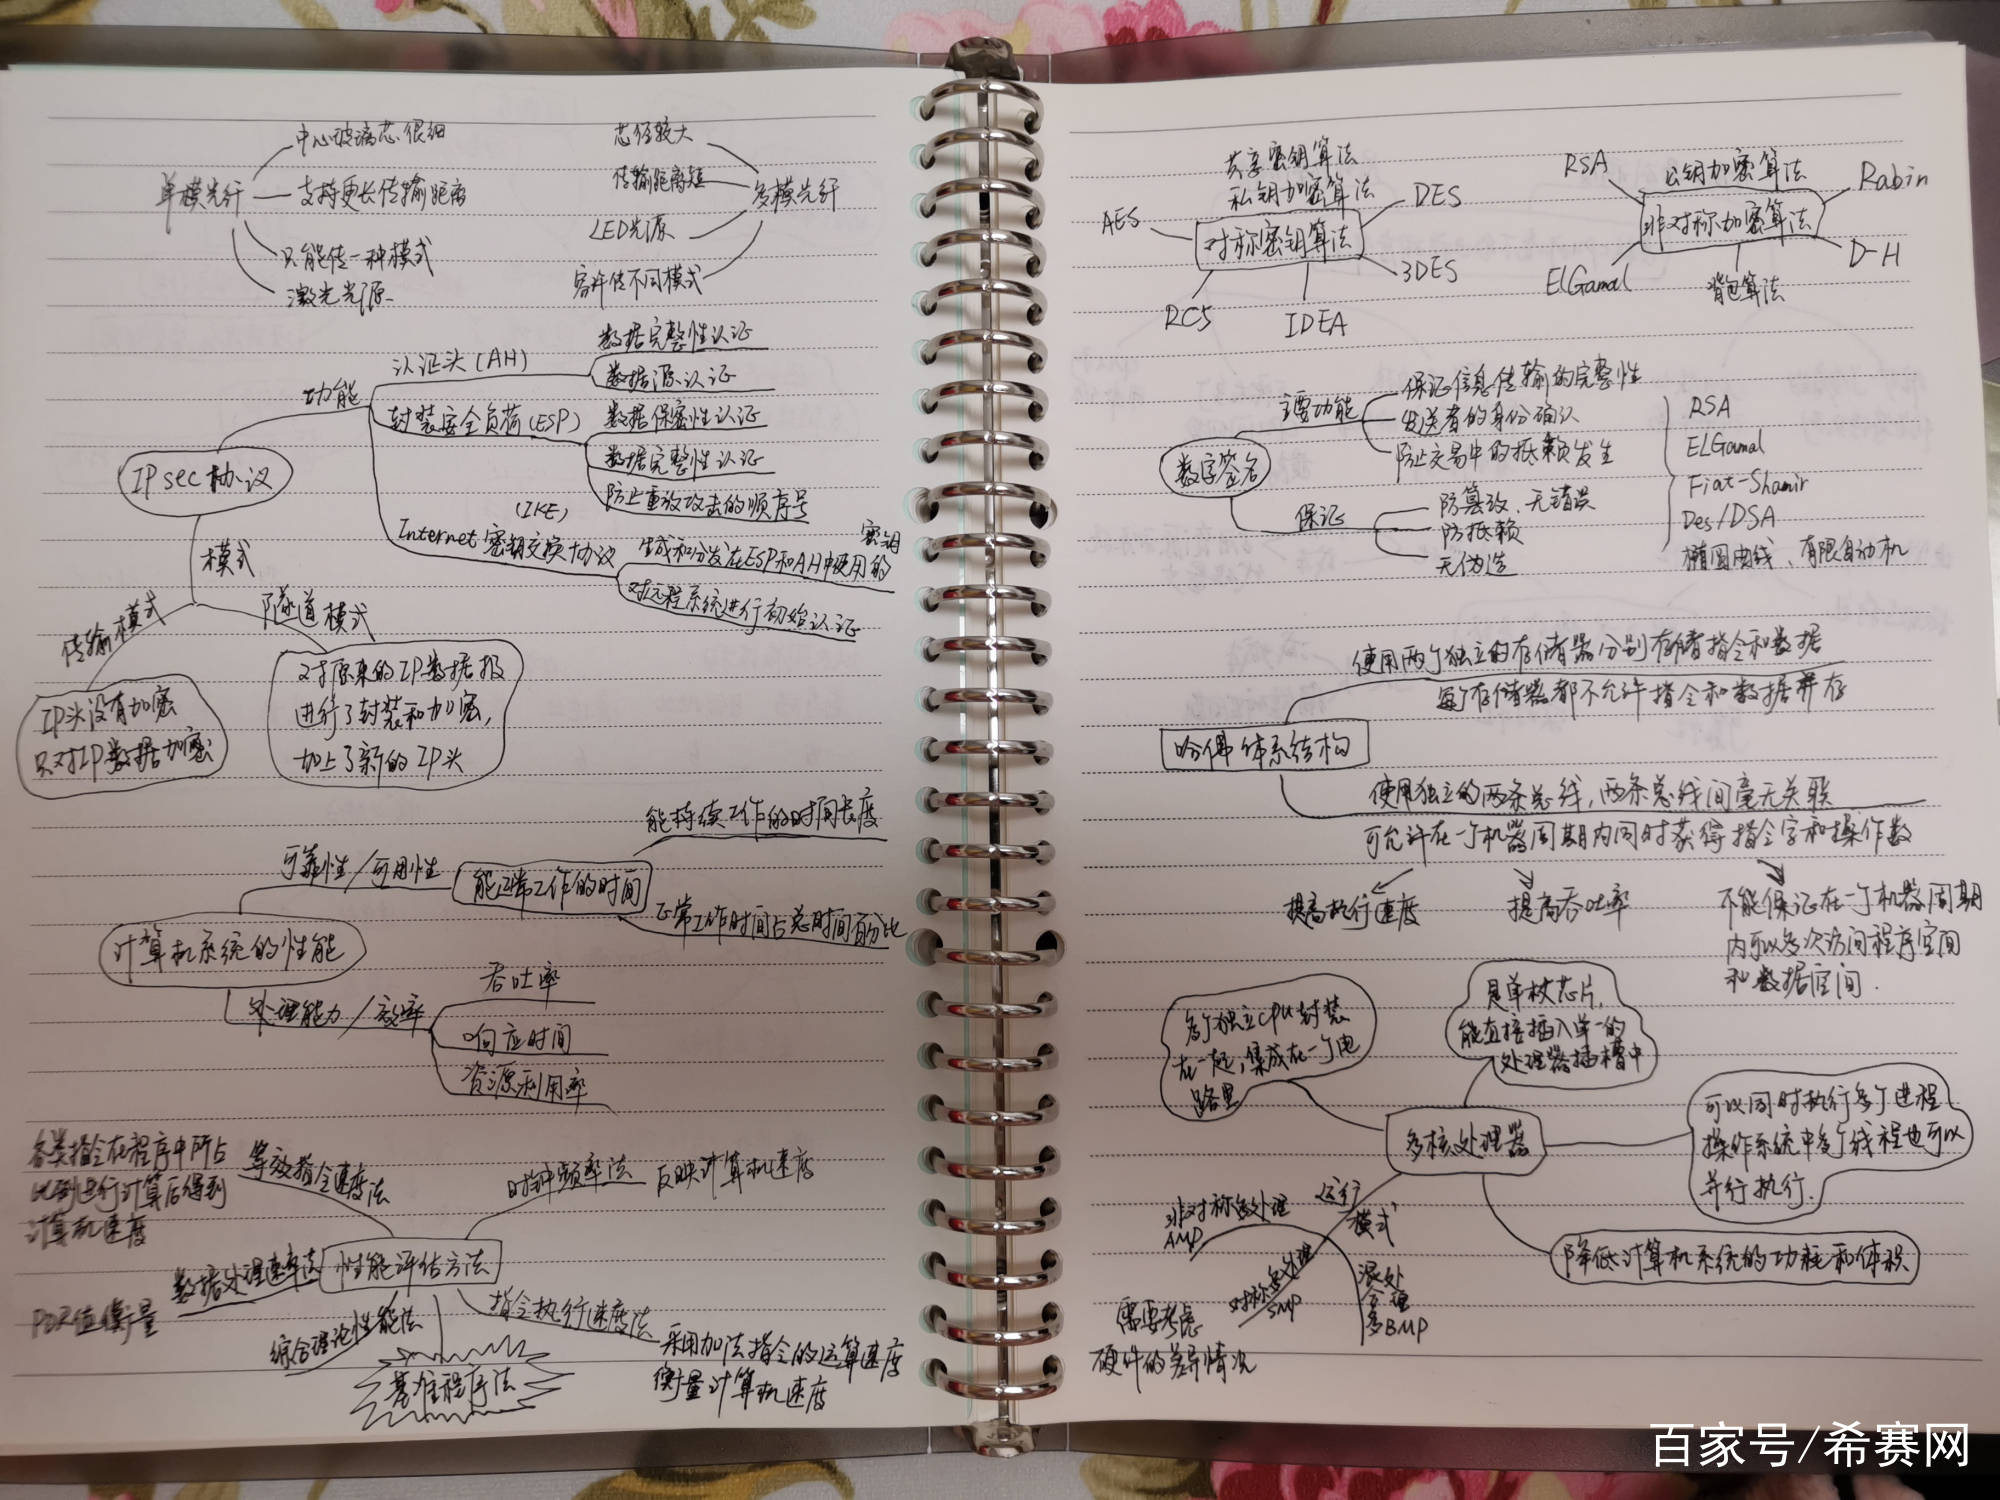 中心玻璃芯很细
单模光纤
支持更长传输距离
只能传一种模式
激光光源
芯径较大
传输距离短
多模光纤
LED光源
容许传不同模式
IPsec协议
功能
认证头(AH)
数据完整性认证
数据源认证
封装安全负荷(ESP)
数据保密性认证
数据完整性认证
防止重放攻击的顺序号
(IKE)
Internet密钥交换协议
密钥
生成和分发在ESP和AH中使用的
对远程系统进行初始认证
模式
传输模式
隧道模式
IP头没有加密
只对IP数据加密
对原来的IP数据报
进行了封装和加密,
加上了新的IP头
能持续工作的时间长度
可靠性/可用性
能正常工作的时间
正常工作时间占总时间百分比
计算机系统的性能
处理能力/效率
吞吐率
响应时间
资源利用率
各类指令在程序中所占
比例进行计算后得到
计算机速度
等效指令速度法
时钟频率法
反映计算机速度
数据处理速率法
性能评估方法
PDR值衡量
综合理论性能法
基准程序法
指令执行速度法
采用加法指令的运算速度
衡量计算机速度
共享密钥算法
私钥加密算法
AES
对称密钥算法
DES
3DES
RC5
IDEA
RSA
公钥加密算法
Rabin
非对称加密算法
ELGamal
背包算法
D-H
数字签名
主要功能
保证信息传输的完整性
发送者的身份确认
防止交易中的抵赖发生
保证
防篡改、无错误
防抵赖
无伪造
RSA
ELGamal
Fiat-Shamir
Des/DSA
椭圆曲线、有限自动机
使用两个独立的存储器分别存储指令和数据
每个存储器都不允许指令和数据并存
哈佛体系结构
使用独立的两条总线,两条总线间毫无关联
可允许在一个机器周期内同时获得指令字和操作数
提高执行速度
提高吞吐率
不能保证在一个机器周期
内可以多次访问程序空间
和数据空间.
多个独立CPU封装
在一起,集成在一个电
路里
是单枚芯片,
能直接插入单一的
处理器插槽中
多核处理器
可以同时执行多个进程
操作系统中多个线程也可以
并行执行.
降低计算机系统的功耗和体积
运行
模式
非对称多处理
AMP
对称多处理
SMP
混合多处理
BMP
需要考虑
硬件的差异情况
百家号/希赛网